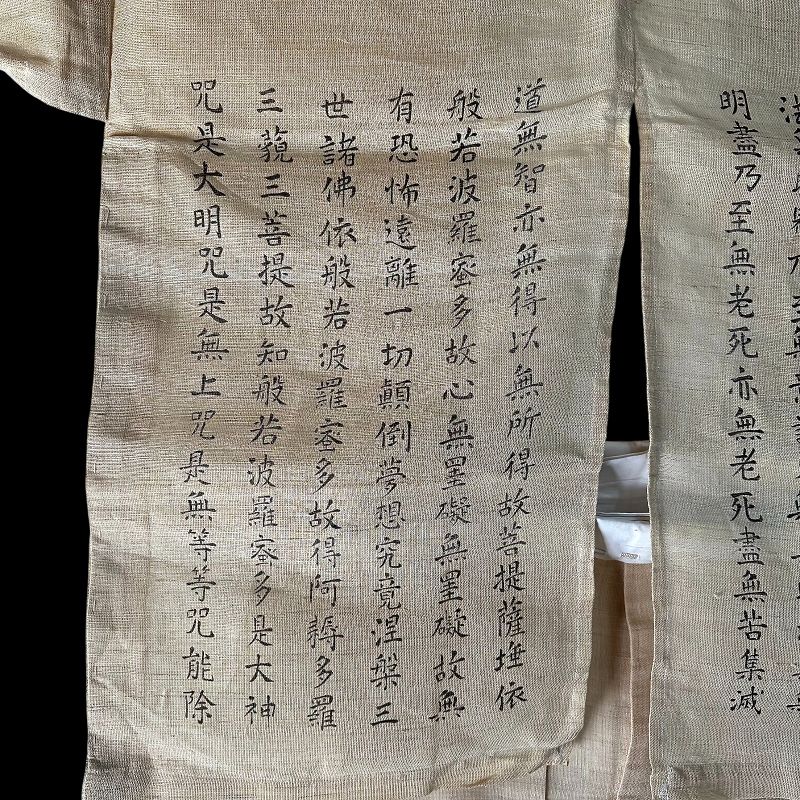 明盡乃至無老死亦無老死盡無苦集滅
道無智亦無得以無所得故菩提薩埵依
般若波羅蜜多故心無罣礙無罣礙故無
有恐怖遠離一切顛倒夢想究竟涅槃三
世諸佛依般若波羅蜜多故得阿耨多羅
三藐三菩提故知般若波羅蜜多是大神
咒是大明咒是無上咒是無等等咒能除